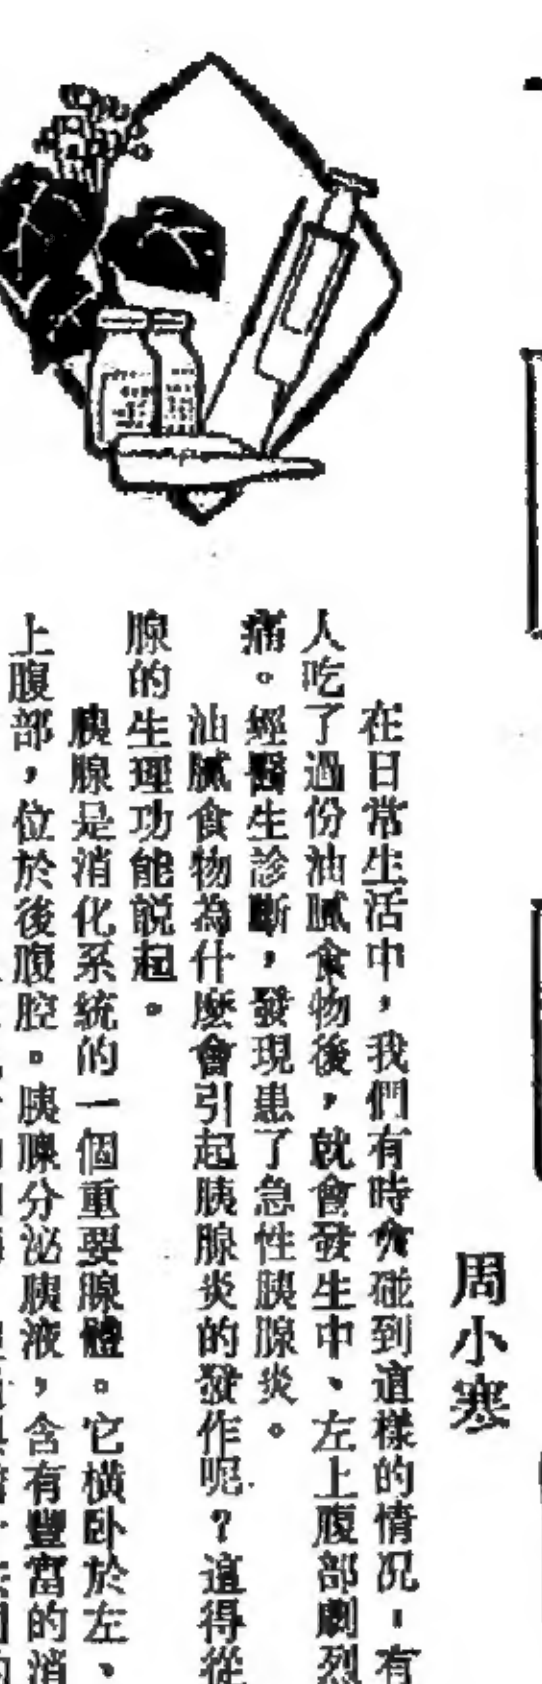 周小寒
在日常生活中，我們有時會碰到這樣的情况，有
人吃了過份油膩食物後，就會發生中、左上腹部劇烈
痛。經醫生診斷，發現患了急性胰腺炎。
油膩食物為什麼會引起胰腺炎的發作呢？這得從
腺的生理功能說起。
胰腺是消化系統的一個重要腺體。它橫卧於左、
上腹部，位於後腹腔。胰腺分泌胰液，含有豐富的消